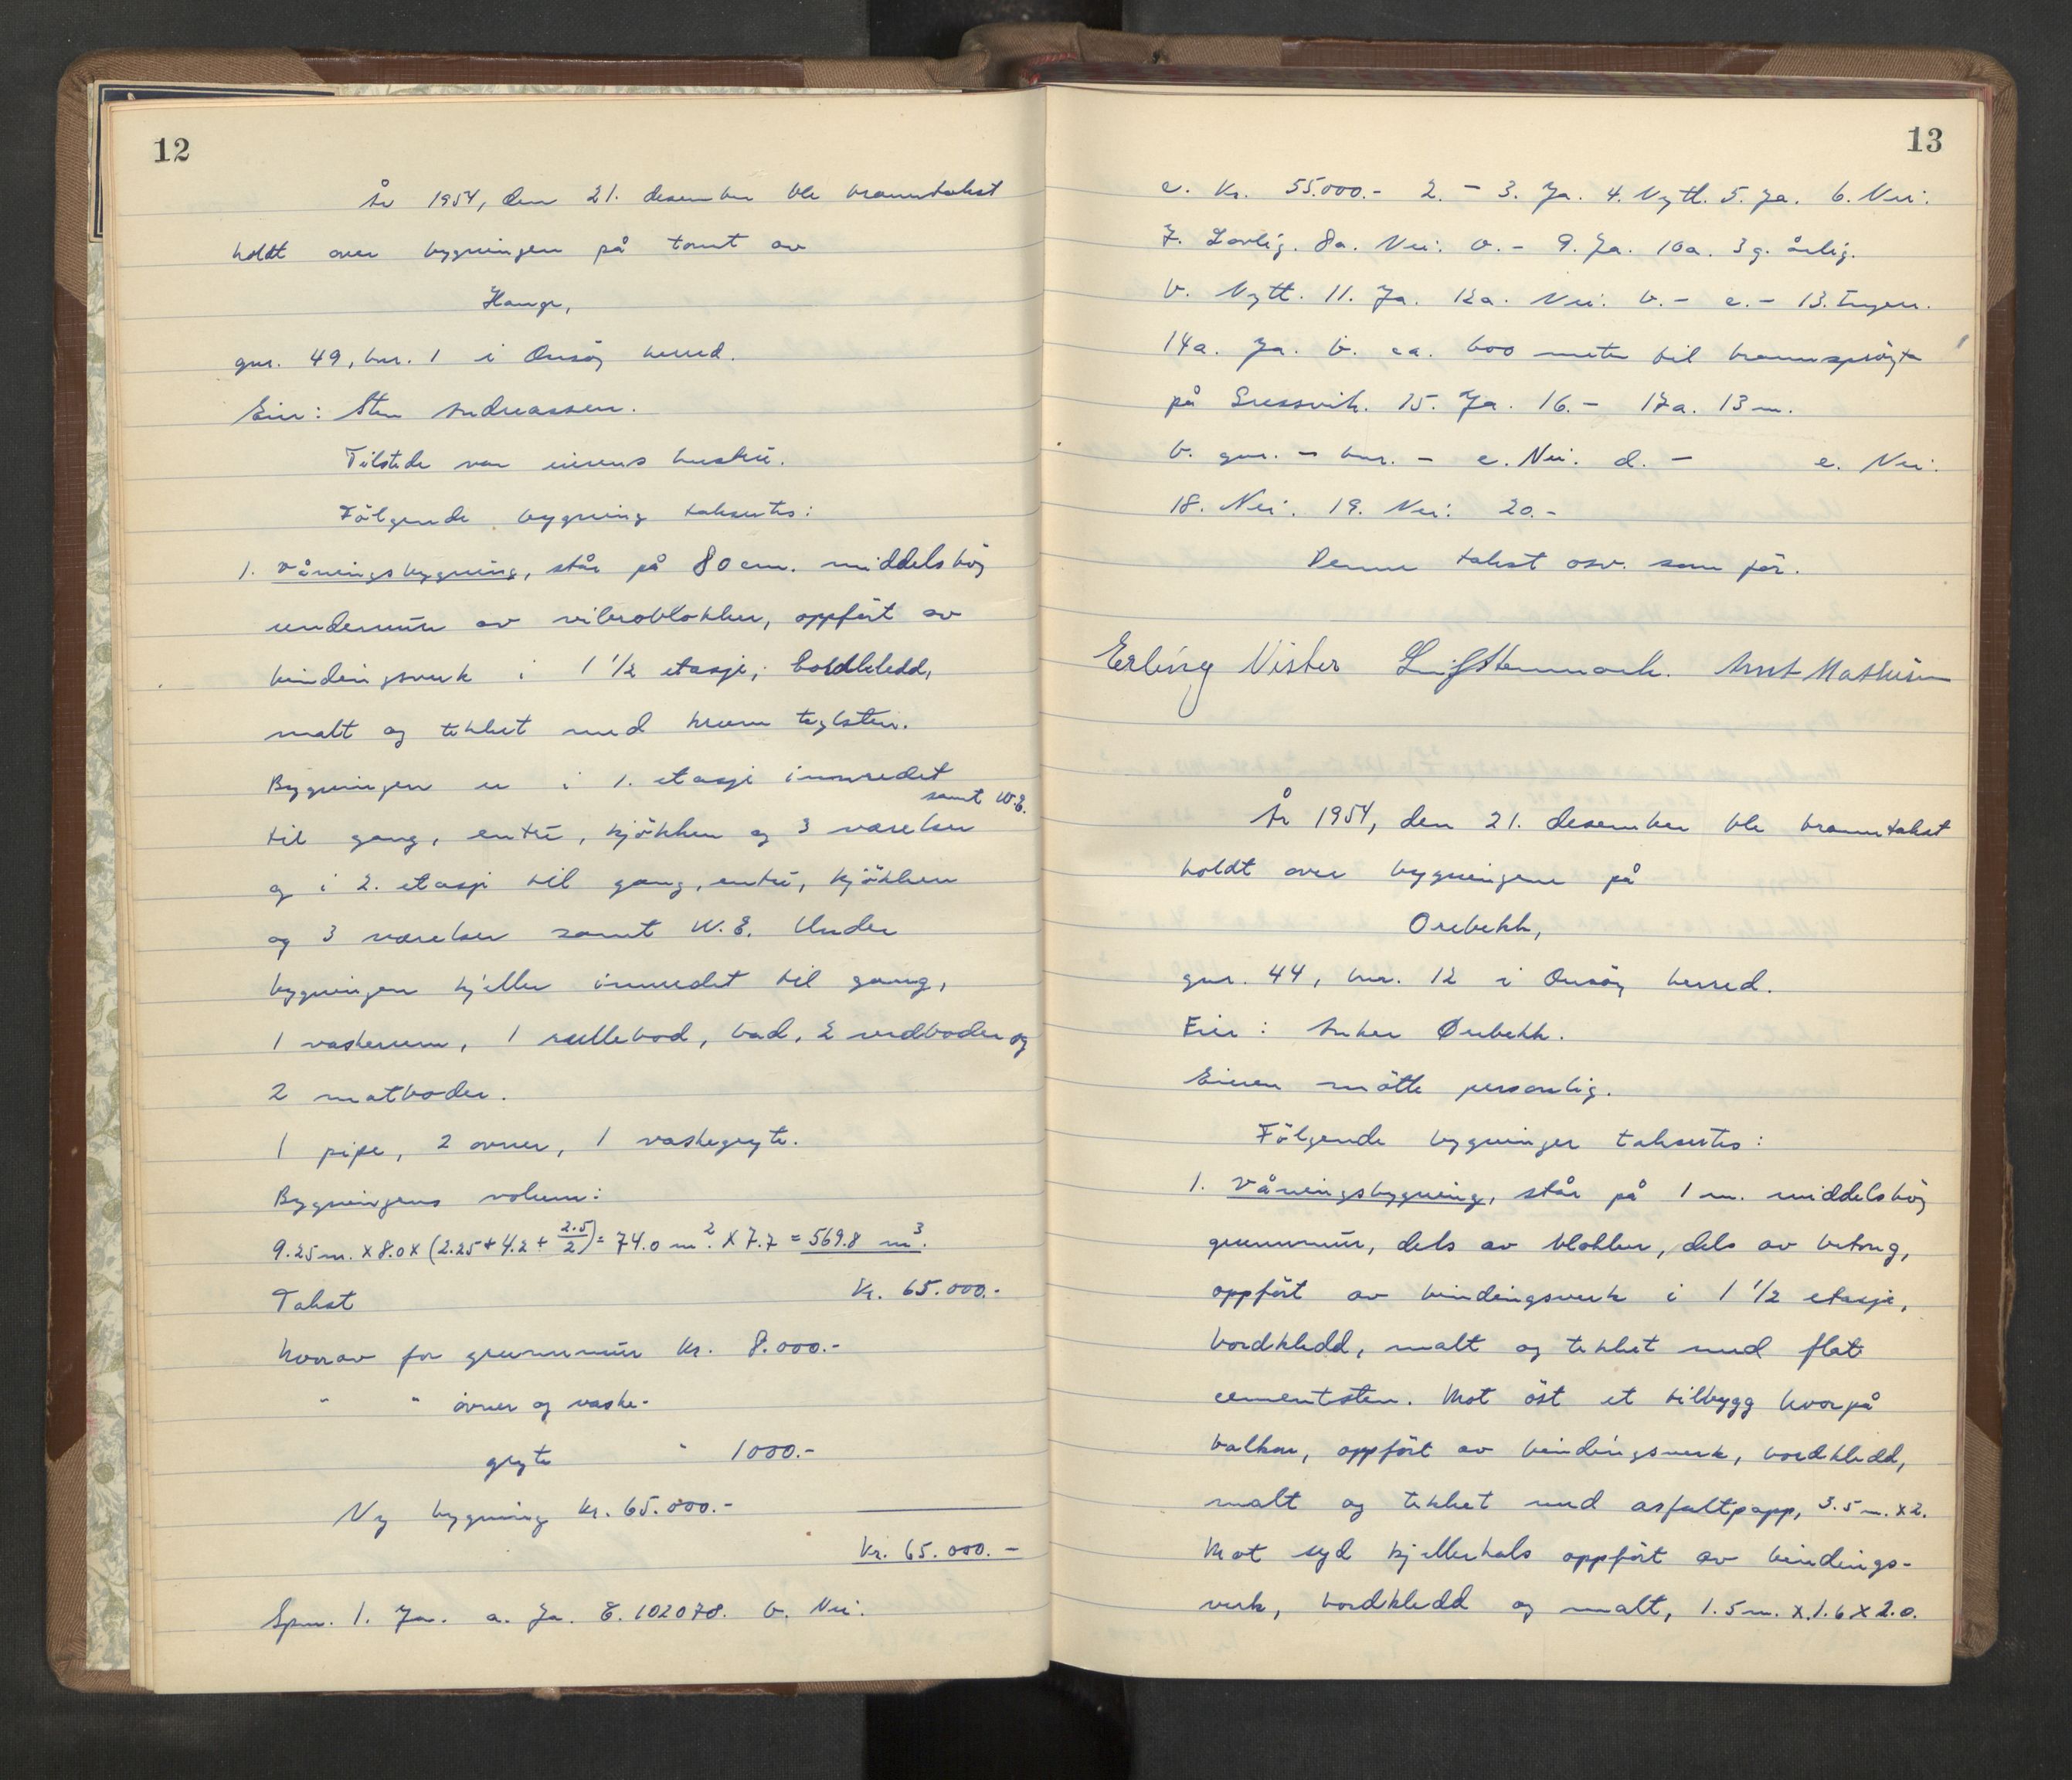 12
År 1954, den 21. desember ble branntakst
holdt over bygningen på tomt av
Hauge,
gnr. 49, bnr. 1 i Onsöy herred.
Eier: Sten Andreassen.
Tilstede var eierens hustru.
Fölgende bygning taksertes:
1. Våningsbygning, står på 80 cm. middelshöy
undermur av vibroblokker, oppfört av
bindingsverk i 1 1/2 etasje, bordkledd,
malt og tekket med krum teglsten.
Bygningen er i 1. etasje innredet
samt W.C.
til gang, entré, kjökken og 3 værelser
og i 2. etasje til gang, entré, kjökken
og 3 værelser samt W.C. Under
bygningen kjeller innredet til gang,
1 vaskerum, 1 rullebod, bad, 2 vedboder og
2 matboder.
1 pipe, 2 ovner, 1 vaskegryte.
Bygningens volum:
9.25 m. x 8.0 x (2.25 + 4.2 + 2.5/2) = 74.0 m². x 7.7 = 569.8 m³.
Takst Kr. 65.000.-
hvorav for grunnmur kr. 8.000.-
" " ovner og vaske-
gryte " 1000.-
Ny bygning kr. 65.000.-
Kr. 65.000.-
Spm. 1. Ja. a. Ja. E. 102078. b. Nei.
13
c. Kr. 55.000.- 2. - 3. Ja. 4. Nytt. 5. Ja. 6. Nei.
7. Lovlig. 8a. Nei. b. - 9. Ja. 10a. 3 g. årlig.
b. Nytt. 11. Ja. 12a. Nei. b. - c. - 13. Ingen.
14a. Ja. b. ca. 600 meter til brannspröyte
på Gressvik. 15. Ja. 16. - 17a. 13 m.
b. gnr. - bnr. - c. Nei. d. - e. Nei.
18. Nei. 19. Nei. 20. -
Denne takst osv. som för.
Erling Vister Arnt Mathisen
År 1954, den 21. desember ble branntakst
holdt over bygningene på
Orebekk,
gnr. 44, bnr. 12 i Onsöy herred.
Eier: Anker Ørebekk.
Eieren mötte personlig.
Fölgende bygninger taksertes:
1. Våningsbygning, står på 1 m. middelshöy
grunnmur, dels av blokker, dels av betong,
oppfört av bindingsverk i 1 1/2 etasje,
bordkledd, malt og tekket med flat
cementsten. Mot öst et tilbygg hvorpå
balkon, oppfört av bindingsverk, bordkledd,
malt og tekket med asfaltpapp, 3.5 m. x 2.
Mot syd kjellerhals oppfört av bindings-
verk, bordkledd og malt, 1.5 m. x 1.6 x 2.0.